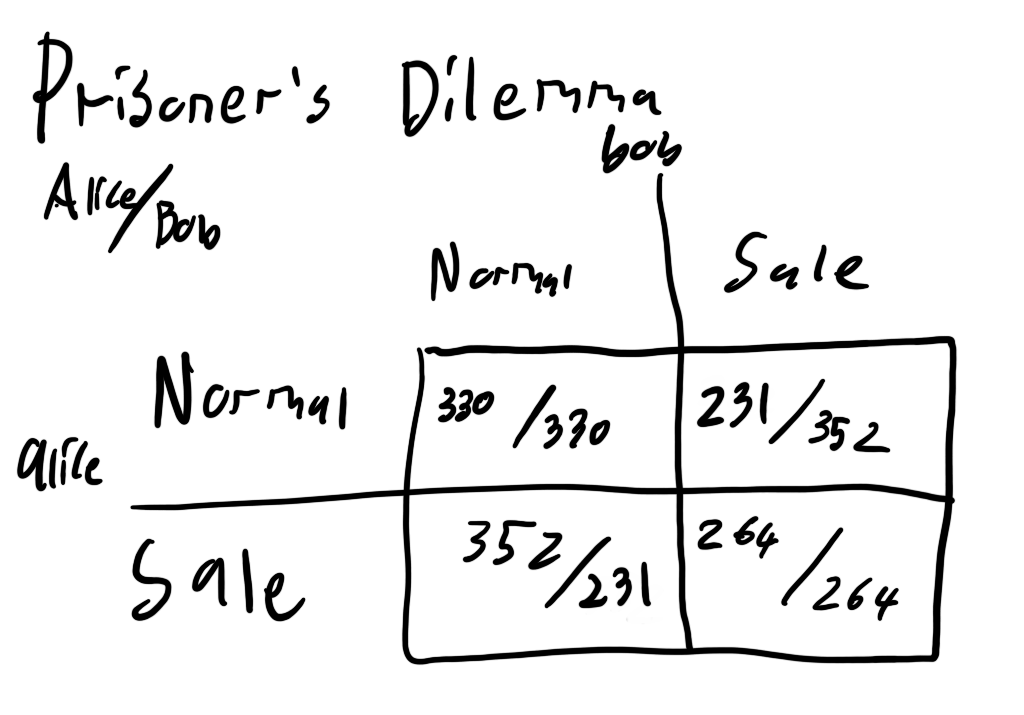 Prisoner's Dilemma
Alice/Bob
bob
Normal Sale
Normal 330/330 231/352
alice
Sale 352/231 264/264